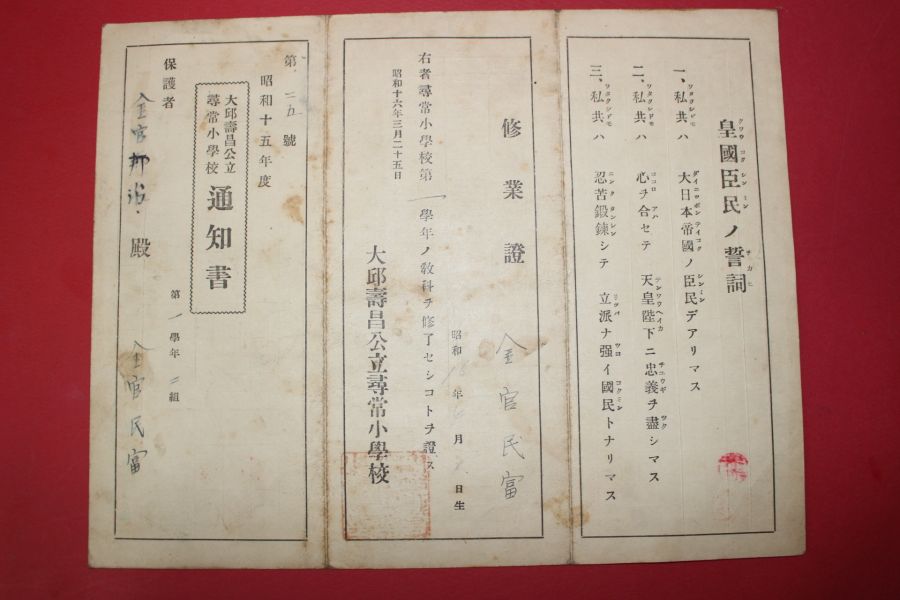 皇國臣民ノ誓詞
一、私共ハ 大日本帝國ノ臣民デアリマス
二、私共ハ 心ヲ合セテ 天皇陛下ニ忠義ヲ盡シマス
三、私共ハ 忍苦鍛鍊シテ 立派ナ强イ國民トナリマス
修業證
金官民富
昭和 年 月 日生
右者尋常小學校第一學年ノ敎科ヲ修了セシコトヲ證ス
昭和十六年三月二十五日
大邱壽昌公立尋常小學校
第 二五 號
昭和十五年度
大邱壽昌公立
尋常小學校
通知書
第一學年二組
保護者
金官 殿
金官民富